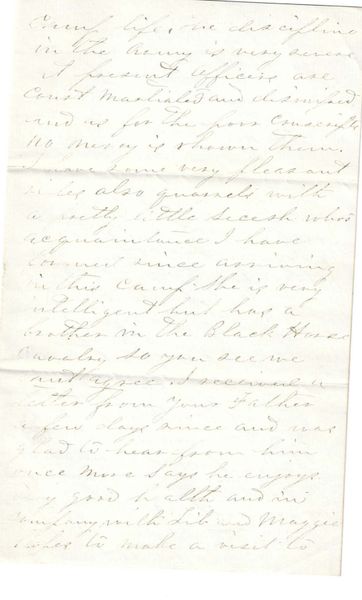 Camp life, the discipline
in the Army is very severe
At present Officers are
Court Martialed and dismissed
and as for the poor Conscripts
no mercy is shown them.
I have some very pleasant
rides also quarrels with
a pretty little secesh whos
acquaintance I have
formed since arriving
in this camp She is very
intelligent but has a
brother in the Black Horse
Cavalry so you see we
agree I received a
letter from your Father
a few days since and was
glad to hear from him
once more says he enjoys
very good health and in
company with Lib and Maggie
to make a visit to